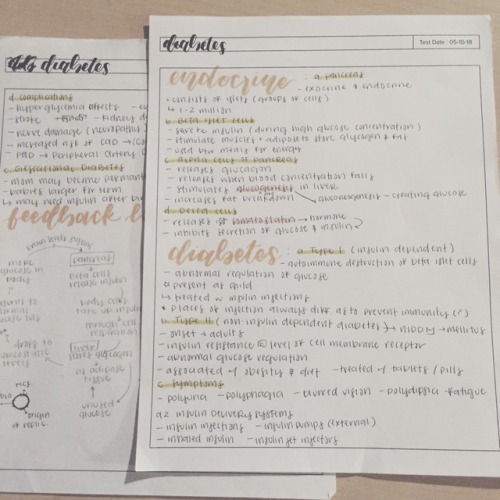 diabetes
Test Date: 05-10-18
endocrine : a. pancreas
- exocrine & endocrine
• consists of islets (groups of cells)
↳ 1-2 million
b. Beta islet cells
- secrete insulin (during high glucose concentration)
- stimulate muscles & adipose to store glycogen & fats
- used btw meals for energy
c. alpha cells of pancreas
- releases glucagon
- releases when blood concentration falls
- stimulates gluconeogenesis in liver
- increases fat breakdown
gluconeogenesis - creating glucose
d. Delta cells
- releases somatostatin → hormone
- inhibits secretion of glucose & insulin
diabetes : a. Type I (insulin dependent)
- autoimmune destruction of beta islet cells
- abnormal regulation of glucose
present as child
↳ treated w insulin injections
• places of injection always diff. as to prevent immunity
b. Type II (non-insulin dependent diabetes) NIDDM → mellitus
- onset → adults
- insulin resistance @ level of cell membrane receptor
- abnormal glucose regulation
- associated w/ obesity & diet - treated w/ tablets / pills
c. Symptoms
- polyuria - polyphagia - blurred vision - polydipsia - fatigue
a.2 insulin delivery systems
- insulin injections - insulin pumps (external)
- inhaled insulin - insulin jet injectors
diabetes
d. complications
- hyperglycemia effects
- stroke - kidney
- nerve damage (neuropathy)
- increased risk of CAD
PAD → Peripheral Artery
e. Gestational Diabetes
- mom may become permanent
- babies larger for term
↳ may need insulin after
feedback
pancreas
beta cells
release insulin
body cells
take up insulin
liver
stores glycogen
as adipose
tissue
unused
glucose
origin
of replic.